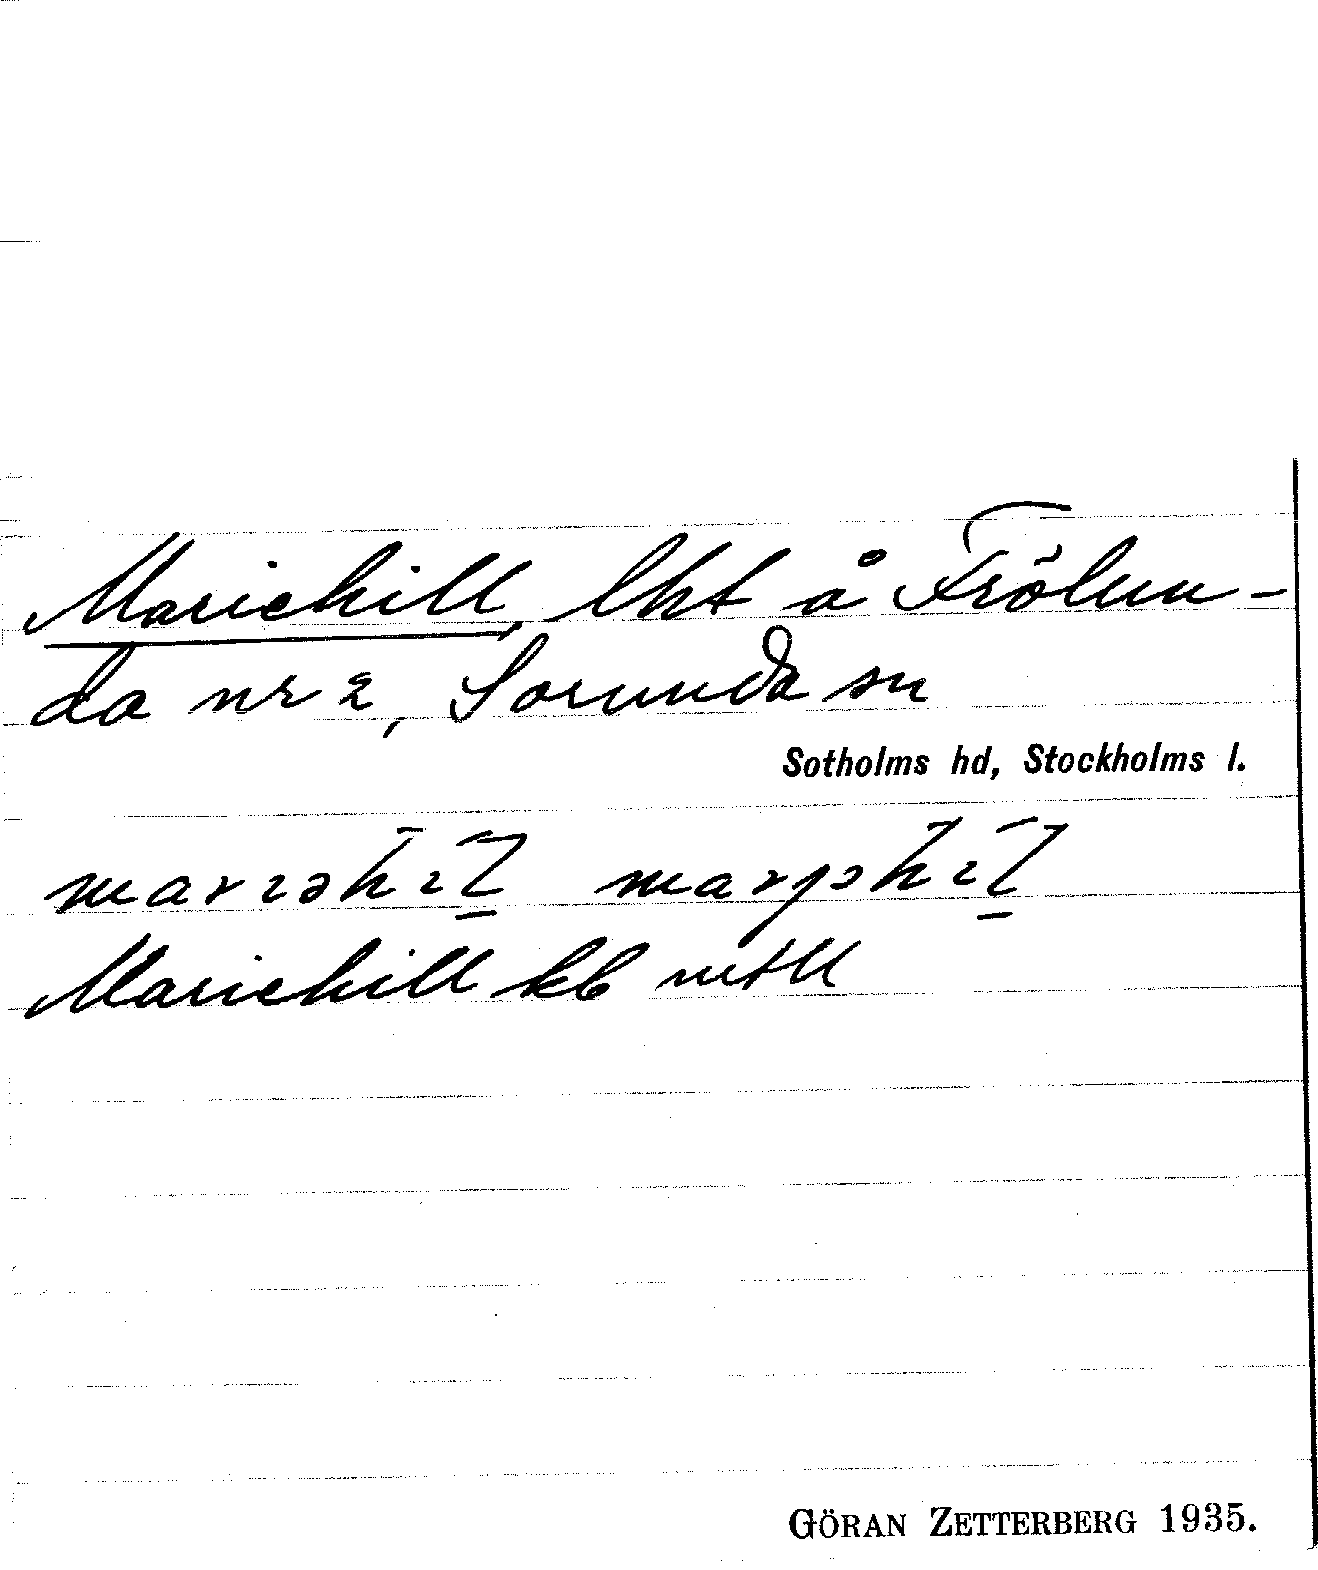 Mariehill, lht å Frölun-
da nr 2, Sorunda sn
Sotholms hd, Stockholms l.
Mariehill kb mtll
GÖRAN ZETTERBERG 1935.